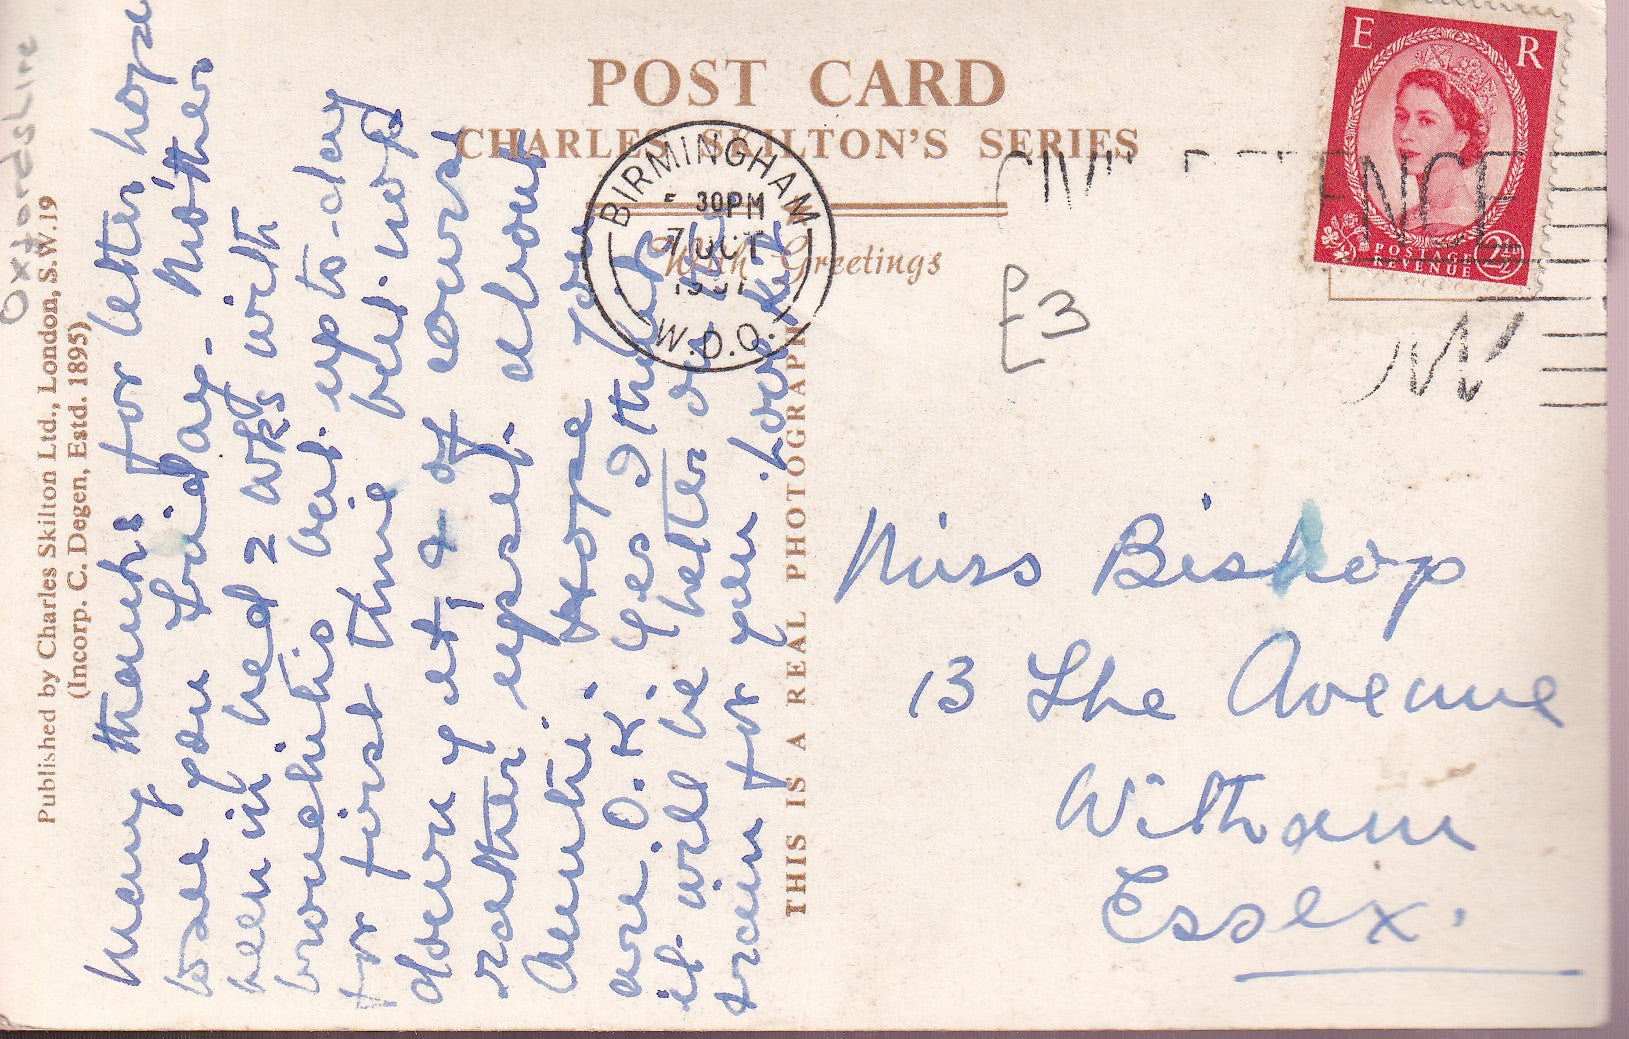 POST CARD
CHARLES SKILTON'S SERIES
With Greetings
BIRMINGHAM
30PM
7 OCT
W.D.O.
E R
POSTAGE
REVENUE
2½
£3
Oxfordshire
Published by Charles Skilton Ltd., London, S.W.19
(Incorp. C. Degen, Estd. 1895)
THIS IS A REAL PHOTOGRAPH
Many thanks for letter hope
to see you Friday. Mother
been in bed 2 wks with
bronchitis but up to-day
for first time but not
down yet, & of course
rather upset about
Auntie. Hope you
are O.K. Yes I think
it will be better
train for you. Look
Miss Bishop
13 The Avenue
Witham
Essex.